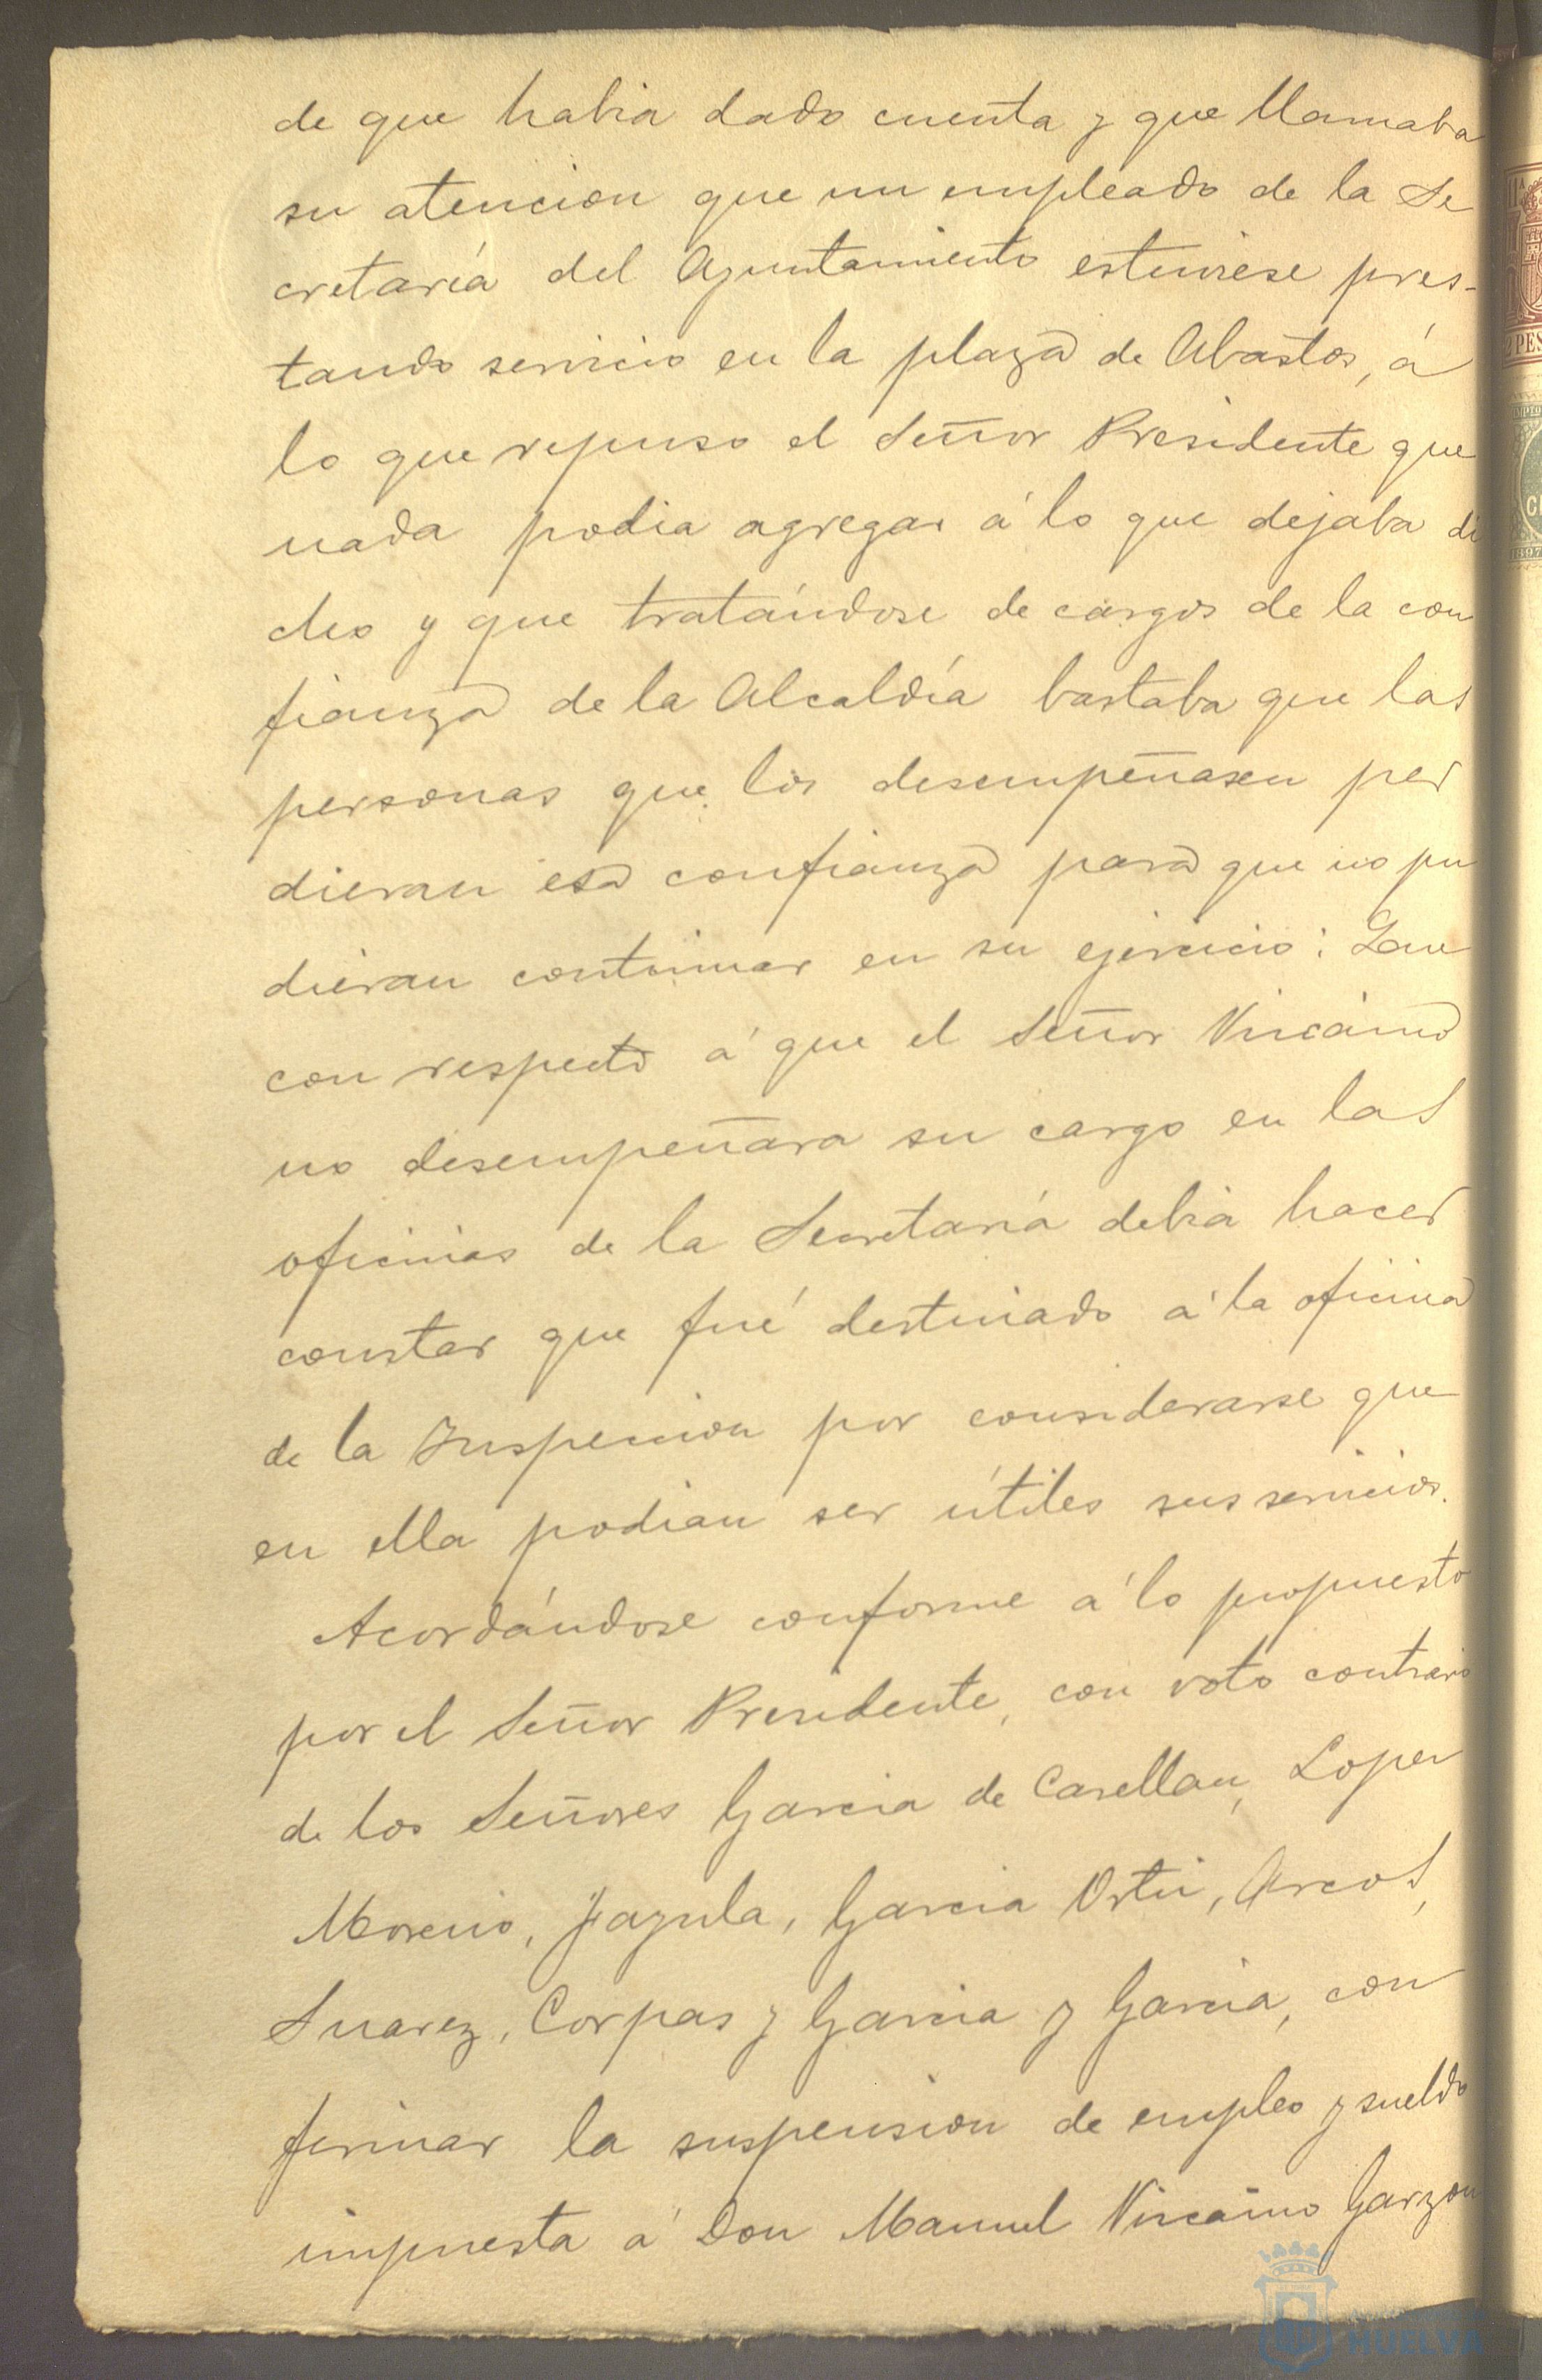 de que habia dado cuenta y que llamaba
su atencion que un empleado de la Se
cretaría del Ayuntamiento estuviese pres-
tando servicio en la plaza de Abastos, á
lo que repuso el Señor Presidente que
nada podia agregar á lo que dejaba di
cho y que tratándose de cargos de la con
fianza de la Alcaldía bastaba que las
personas que los desempeñasen per
dieran esa confianza para que no pu
dieran continuar en su ejercicio: Que
con respecto á que el Señor Viscaino
no desempeñara su cargo en las
oficinas de la Secretaría debia hacer
constar que fué destinado á la oficina
de la Inspeccion por considerarse que
en ella podian ser útiles sus servicios.
Acordándose conforme á lo propuesto
por el Señor Presidente, con voto contrario
de los Señores Garcia de Casellau, Lopez
Moreno, Jazula, Garcia Ortiz, Arcos,
Suarez, Corpas y Garcia y Garcia, con
firmar la suspension de empleo y sueldo
impuesta á Don Manuel Viscaino Garzon
HUELVA